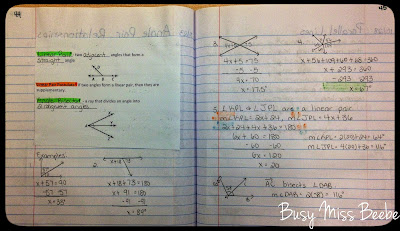 44
Angle Pair Relationships
Linear Pair - two adjacent angles that form a
straight angle
Linear Pair Postulate - If two angles form a linear pair, then they are
supplementary.
Angle Bisector - a ray that divides an angle into
2 congruent angles
Examples:
1.
x+57=90
-57 -57
x=33°
2.
x+18+73=180
x+91=180
-91 -91
x=89°
45
3.
4x+5=75
-5 -5
4x=70
x=17.5°
4.
x+293=360
-293 -293
x=67°
5. ∠HPL & ∠JPL are a linear pair
m∠HPL=2x+24, m∠JPL=4x+36
2x+24+4x+36=180
6x+60=180
-60 -60
6x=120
x=20
m∠HPL=2(20)+24=64°
m∠JPL=4(20)+36=116°
6.
AC bisects ∠DAB
m∠DAB=2(58)=116°
Busy Miss Beebe